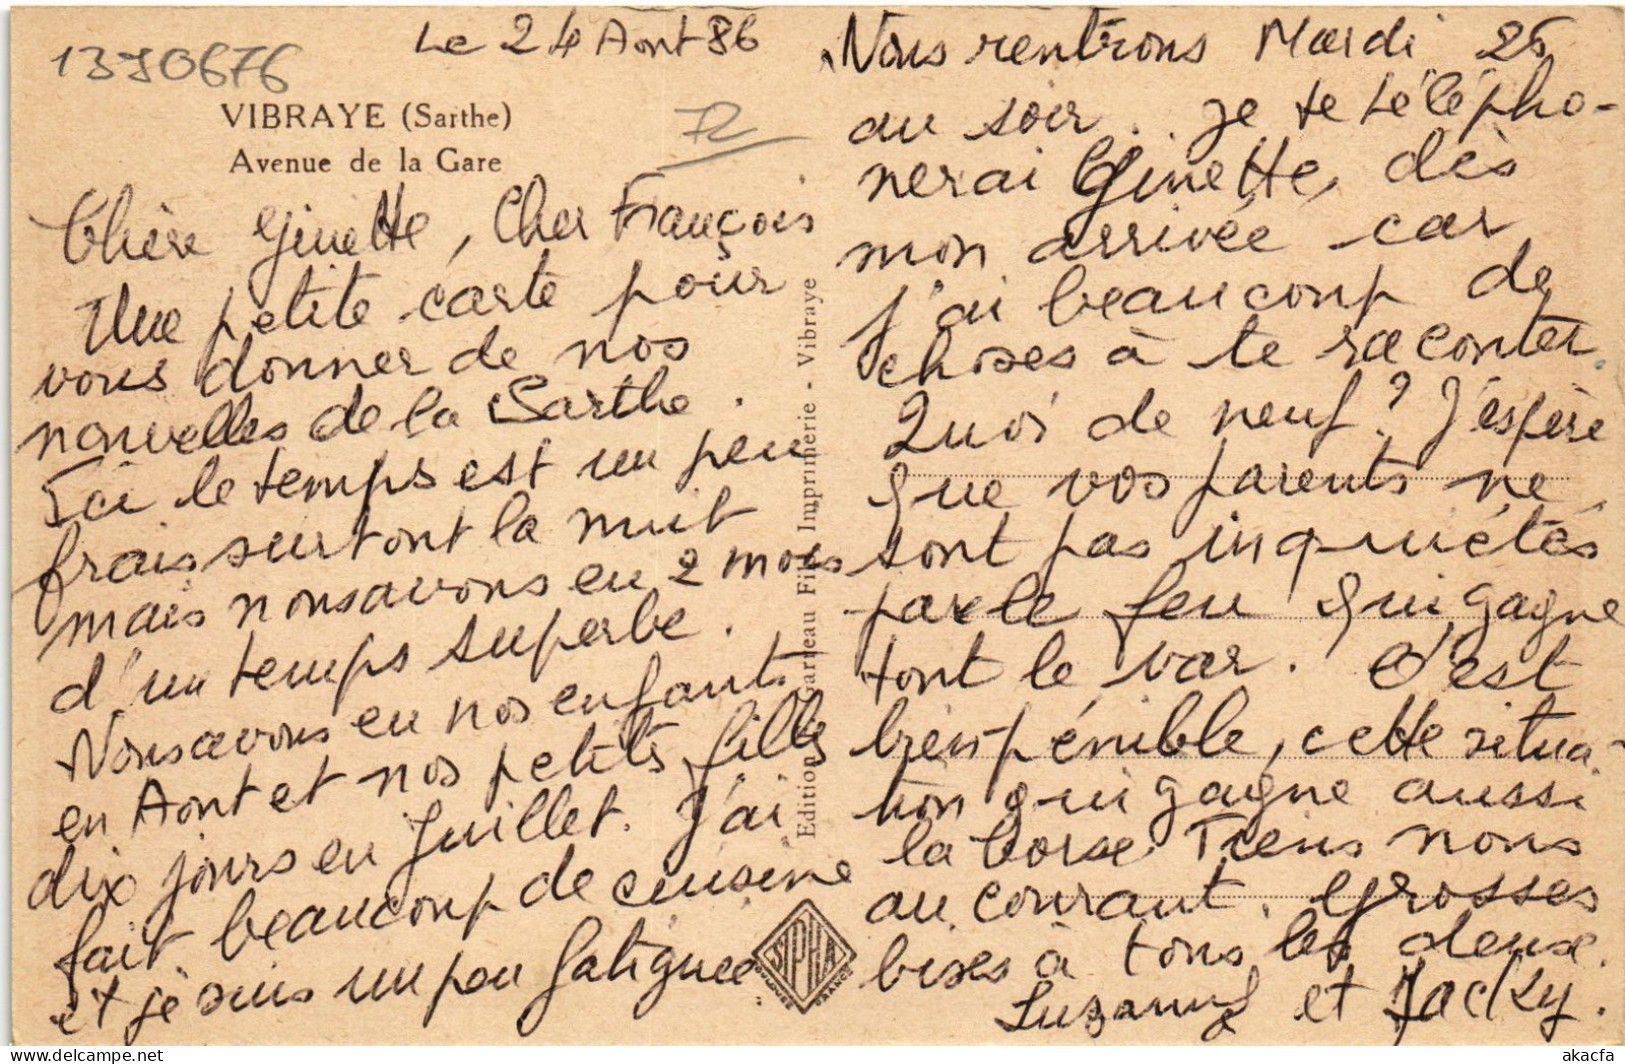 1370676
Le 24 Aout 86
VIBRAYE (Sarthe)
Avenue de la Gare
72
Chère Ginette, Cher François
Une petite carte pour
vous donner de nos
nouvelles de la Sarthe.
Ici le temps est un peu
frais surtout la nuit
mais nous avons eu 2 mois
d'un temps superbe.
Nous avons eu nos enfants
en Aout et nos petits filles
dix jours en Juillet. J'ai
fait beaucoup de cuisine
et je suis un peu fatiguée.
Edition Garreau Fils, Imprimerie - Vibraye
SIPHA
TOULOUSE FRANCE
Nous rentrons Mardi 26
au soir. Je te télépho-
nerai Ginette, dès
mon arrivée car
j'ai beaucoup de
choses à te raconter.
Quoi de neuf? J'espère
que vos parents ne
sont pas inquiétés
par le feu qui gagne
tout le var. C'est
bien pénible, cette situa-
tion qui gagne aussi
la Corse. Tiens nous
au courant. Grosses
bises à tous les deux.
Suzanne et Jacky.
akacfa